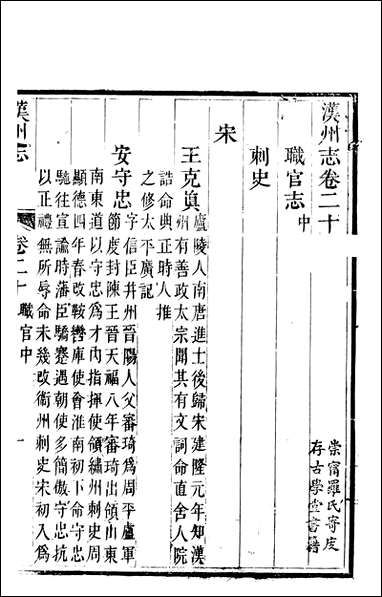 漢州志卷二十
崇甯羅氏寄庋
存古學堂書籍
職官志中
刺史
宋
王克眞廬陵人南唐進士後歸宋建隆元年知漢
州有善政太宗聞其有文詞命直舍人院
誥命典正時人推
之修太平廣記
安守忠字信臣幷州晉陽人父審琦爲周平盧軍
節度封陳王晉天福八年審琦出領山東
南東道以守忠爲才內指揮使領繡州刺史周
顯德四年春改鞍轡庫使會淮南初下命守忠
馳往宣諭時藩臣驕蹇遇朝使多簡傲守忠抗
以正禮無所辱命未幾改衞州刺史宋初入爲
漢州志 卷二十 職官中 一